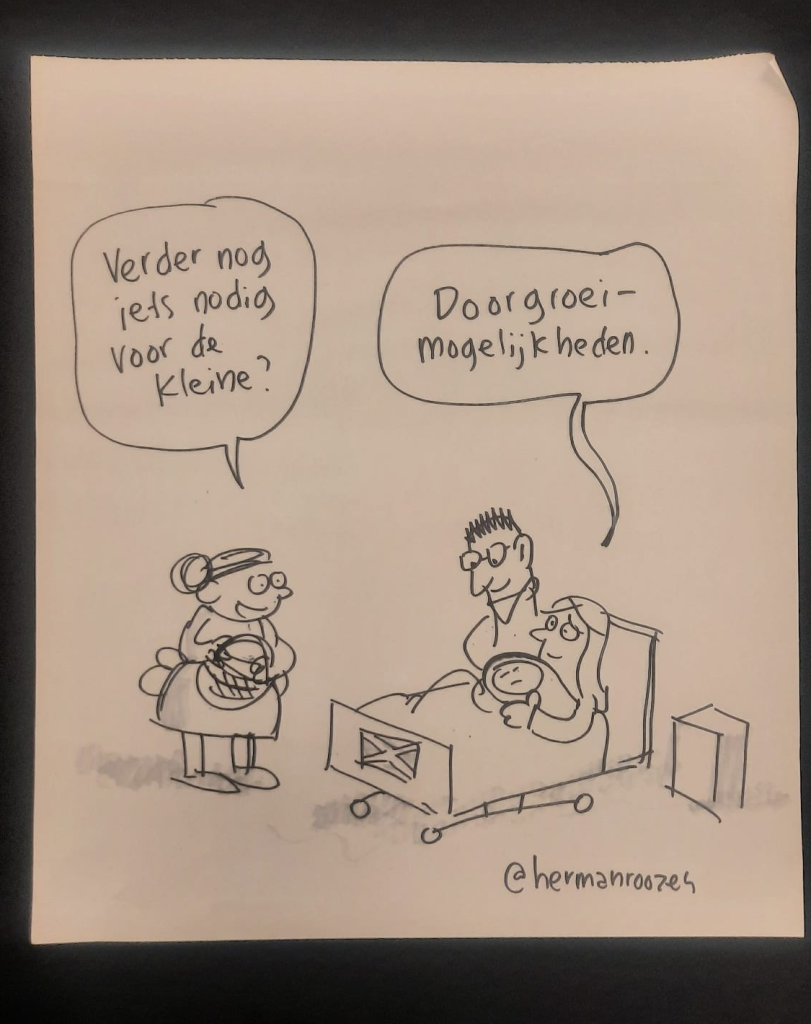 Verder nog
iets nodig
voor de
kleine?
Doorgroei-
mogelijkheden.
@hermanroozen